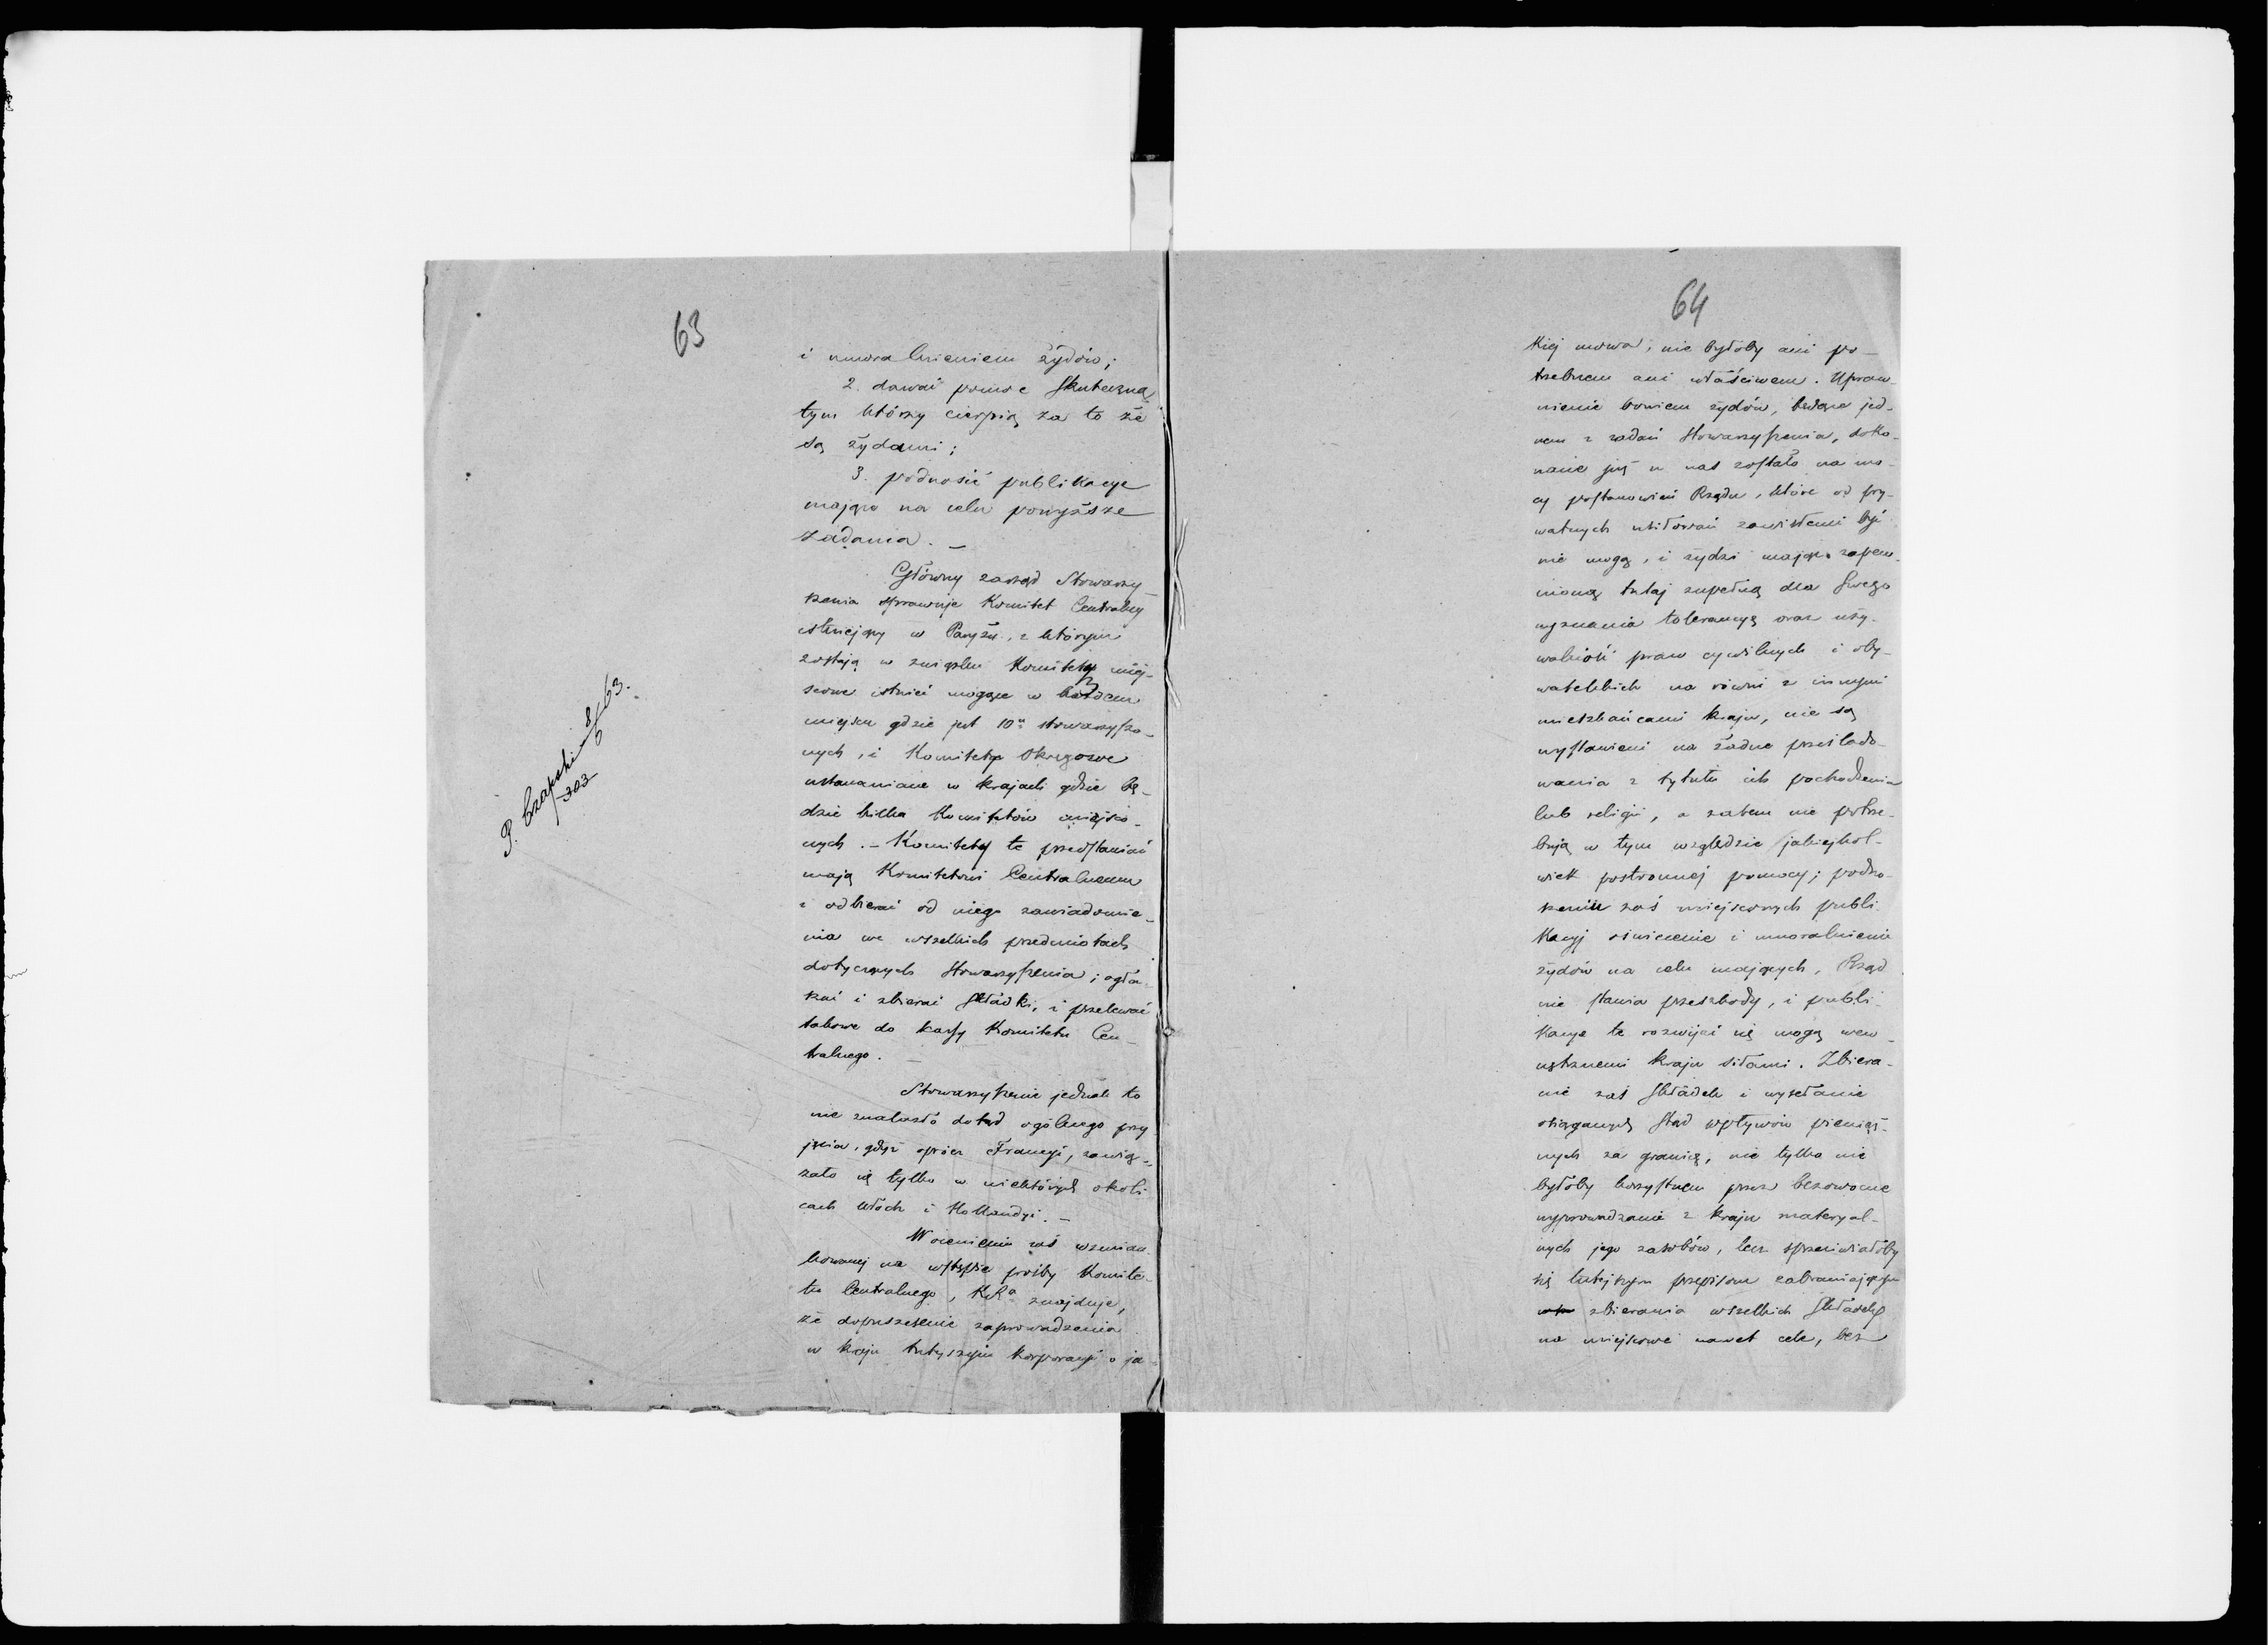 63
i umoralnieniem żydów;
2. dawać pomoc skuteczną
tym którzy cierpią za to że
są żydami;
3. podnosić publikacye
mające na celu powyższe
zadania. —
Główny zarząd Stowarzy-
szenia sprawuje Komitet Centralny
istniejący w Paryżu, z którym
zostają w związku Komitety miej-
scowe istnieć mogące w każdem
miejscu gdzie jest 10u stowarzyszo-
nych, i Komiteta Okręgowe
ustanawiane w krajach gdzie bę-
dzie kilka Komitetów miejsco-
wych. — Komitety te przedstawiać
mają Komitetowi Centralnemu
i odbierać od niego zawiadomie-
nia we wszelkich przedmiotach
dotyczących Stowarzyszenia; ogła-
szać i zbierać składki, i przelewać
takowe do kassy Komitetu Cen-
tralnego. —
Stowarzyszenie jednak to
nie znalazło dotąd ogólnego przy
jęcia, gdyż oprócz Francyi, zawią-
zało się tylko w niektórych okoli
cach Włoch i Hollandyi. —
W ocenieniu zaś wzmian
kowanej na wstępie prośby Komite-
tu Centralnego, KRa znajduje,
że dopuszczenie zaprowadzenia
w kraju tutejszym korporacyi o ja-
P. Czapski 8/6 63.
303
64
kiej mowa, nie byłoby ani po-
trzebnem ani właściwem. Upraw-
nienie bowiem żydów, będące jed-
nem z zadań Stowarzyszenia, doko-
nane już u nas zostało na mo-
cy postanowień Rządu, które od pry-
watnych usiłowań zawisłemi być
nie mogą, i żydzi mając zapew-
nioną tutaj zupełną dla swego
wyznania tolerancyą oraz uży-
walność praw cywilnych i oby-
watelskich na równi z innymi
mieszkańcami kraju, nie są
wystawieni na żadne prześlado-
wania z tytułu ich pochodzenia
lub religii, a zatem nie potrze-
bują w tym względzie jakiejkol-
wiek postronnej pomocy; podno-
szeniu zaś miejscowych publi-
kacyj oświecenie i umoralnienie
żydów na celu mających, Rząd
nie stawia przeszkody, i publi-
kacye te rozwijać się mogą wew-
nętrznemi kraju siłami. Zbiera-
nie zaś składek i wysełanie
osiąganych stąd wpływów pienięż-
nych za granicę, nie tylko nie
byłoby korzystnem przez bezowocne
wyprowadzanie z kraju materyal-
nych jego zasobów, lecz sprzeciwiałoby
się tutejszym przepisom zabraniającym
zbierania wszelkich składek
na miejscowe nawet cele, bez